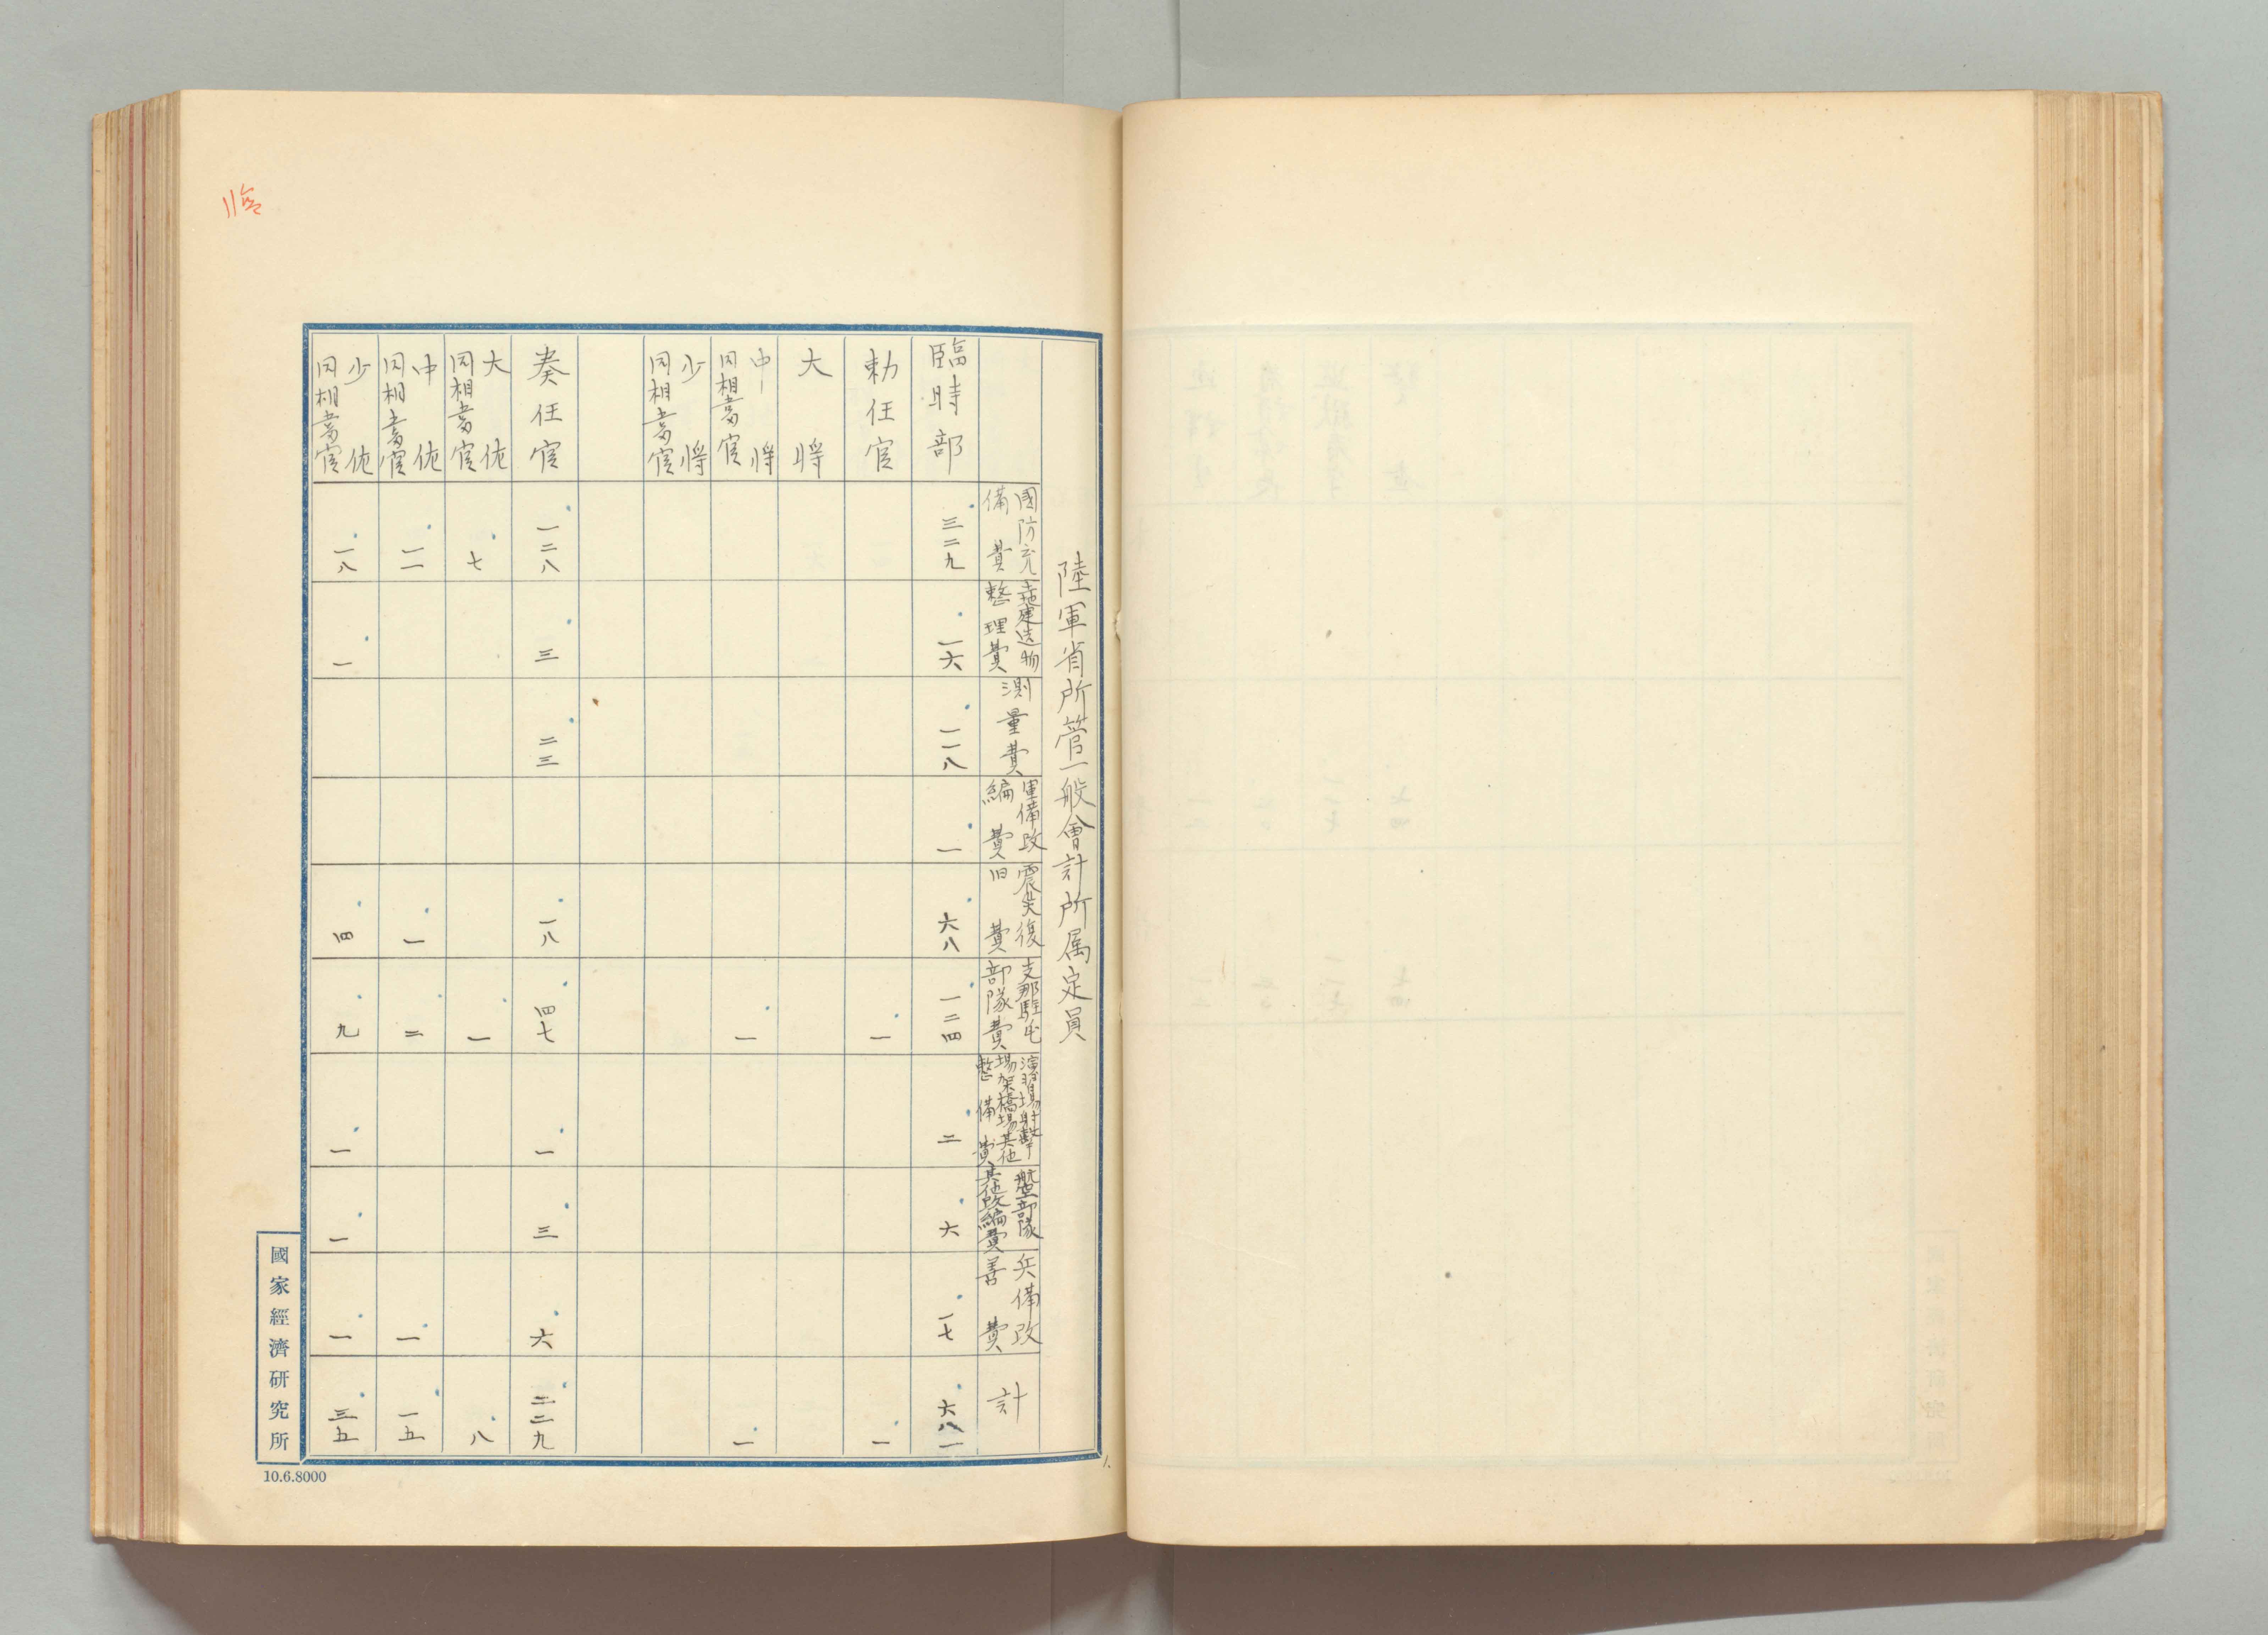 臨
陸軍省所管一般會計所属定員
國防充備費
土地建造物整理費
測量費
軍備改編費
震災復旧費
支那駐屯部隊費
演習場射撃場架橋場其他整備費
航空部隊其他改編費
兵備改善費
計
臨時部 三二九 一六 一一八 一 六八 一二四 二 六 一七 六八一
勅任官 一 一
大将
中将同相當官 一 一
少将同相當官
奏任官 一二八 三 二三 一八 四七 一 三 六 二二九
大佐同相當官 七 一 八
中佐同相當官 一一 一 二 一 一五
少佐同相當官 一八 一 四 九 一 一 一 三五
國家經濟研究所
10.6.8000